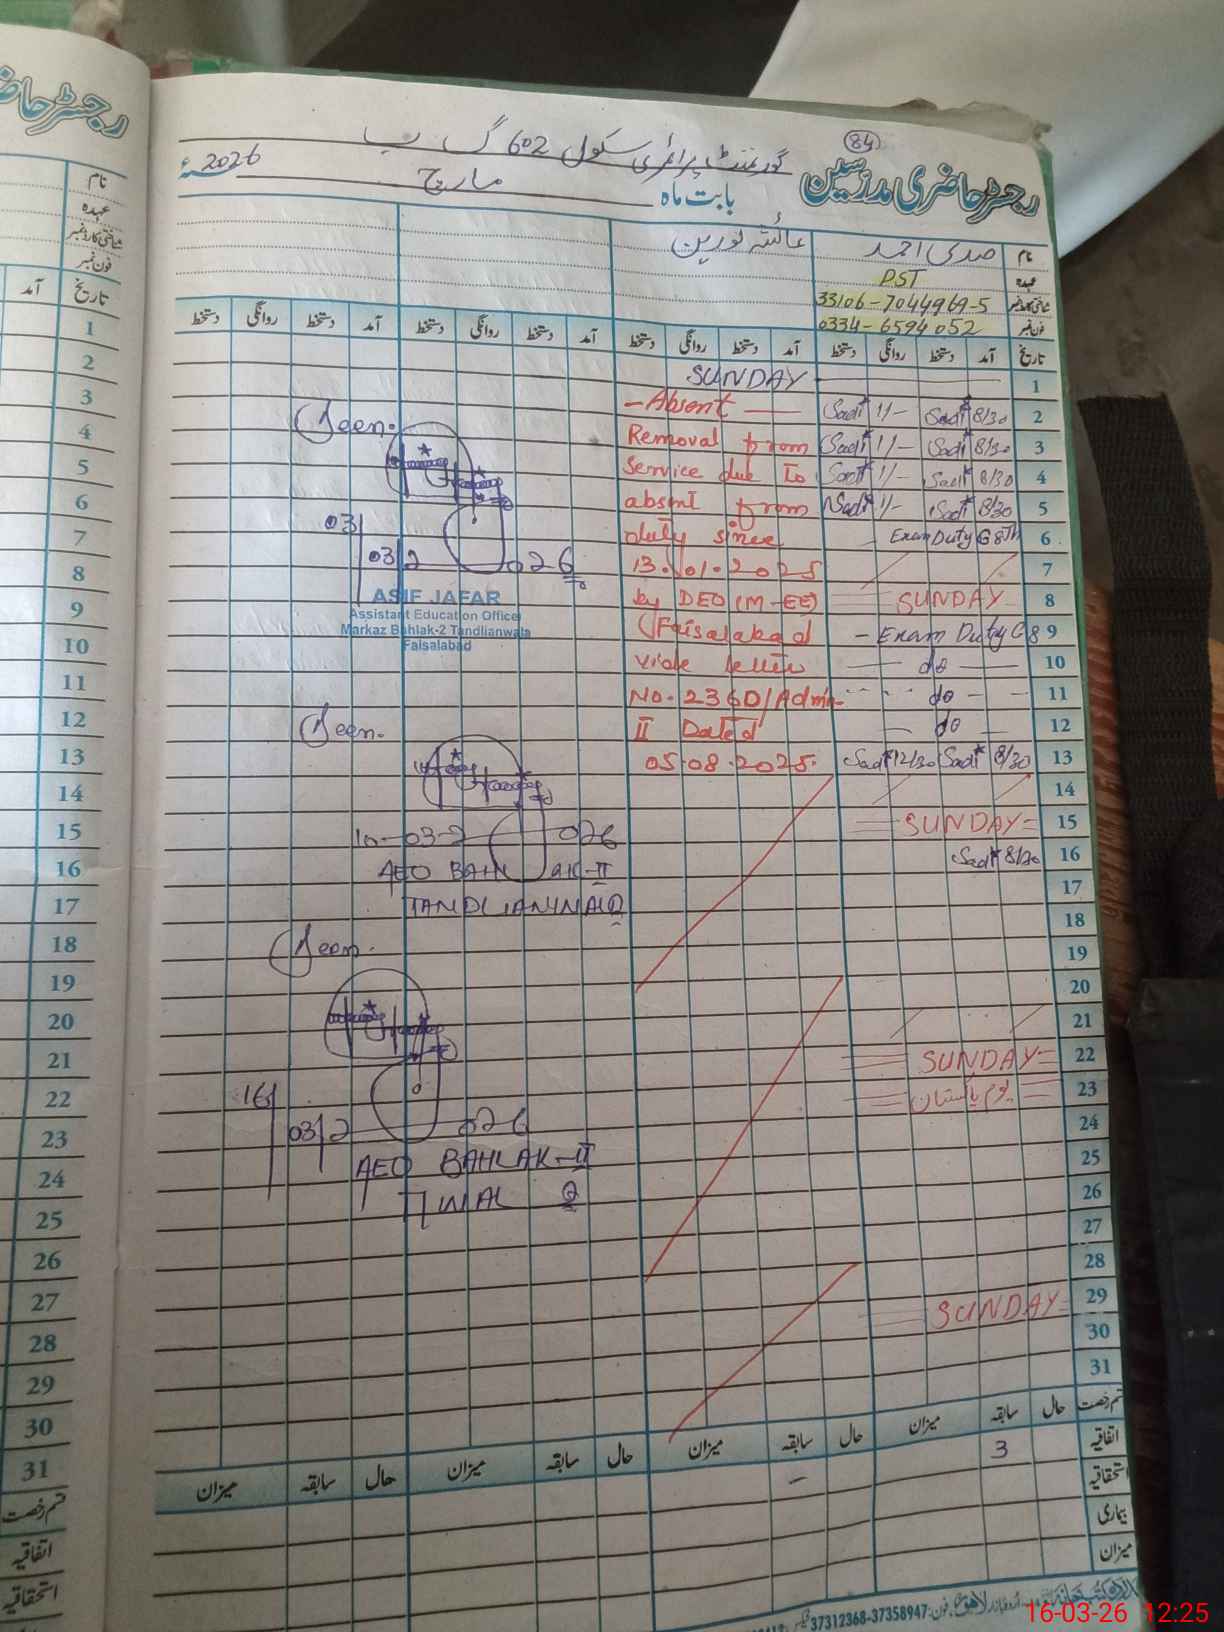 رجسٹر حاضری مدرسین
84
گورنمنٹ پرائمری سکول 602 گ ب
بابت ماہ مارچ 2026ء
نام صدی احمد عائشہ نورین
عہدہ PST
شناختی کارڈ نمبر 33106-7044969-5
فون نمبر 0334-6594052
تاریخ آمد دستخط روانگی دستخط آمد دستخط روانگی دستخط آمد دستخط روانگی دستخط آمد دستخط روانگی دستخط
1 SUNDAY
2 8/30 Sadi 1/- Sadi - Absent -
3 8/30 Sadi 1/- Sadi Removal from
4 8/30 Sadi 1/- Sadi Service due to
5 8/30 Sadi 1/- Sadi absent from
6 Exam Duty G 8Th duty since
7 13.01.2025
8 SUNDAY by DEO (M-EE)
9 - Exam Duty G 8 Faisalabad
10 do vide letter
11 do No. 2360/Admn-
12 do II Dated
13 8/30 Sadi 12/30 Sadi 05.08.2025.
14
15 SUNDAY
16 8/30 Sadi
17
18
19
20
21
22 SUNDAY
23 یوم پاکستان
24
25
26
27
28
29 SUNDAY
30
31
Seen.
03/03/2026
ASIF JAFAR
Assistant Education Officer
Markaz Bahlak-2 Tandlianwala
Faisalabad
Seen.
10-03-2026
AEO BAHLAK-II
Seen.
16/03/2026
AEO BAHLAK-II
قسم رخصت حال سابقہ میزان حال سابقہ میزان حال سابقہ میزان حال سابقہ میزان
اتفاقیہ 3 -
استحقاقیہ
بیماری
میزان
فون: 37312368-37358947
رجسٹر حاضری
نام
عہدہ
شناختی کارڈ نمبر
فون نمبر
تاریخ آمد
1
2
3
4
5
6
7
8
9
10
11
12
13
14
15
16
17
18
19
20
21
22
23
24
25
26
27
28
29
30
31
قسم رخصت
اتفاقیہ
استحقاقیہ
16-03-26 12:25